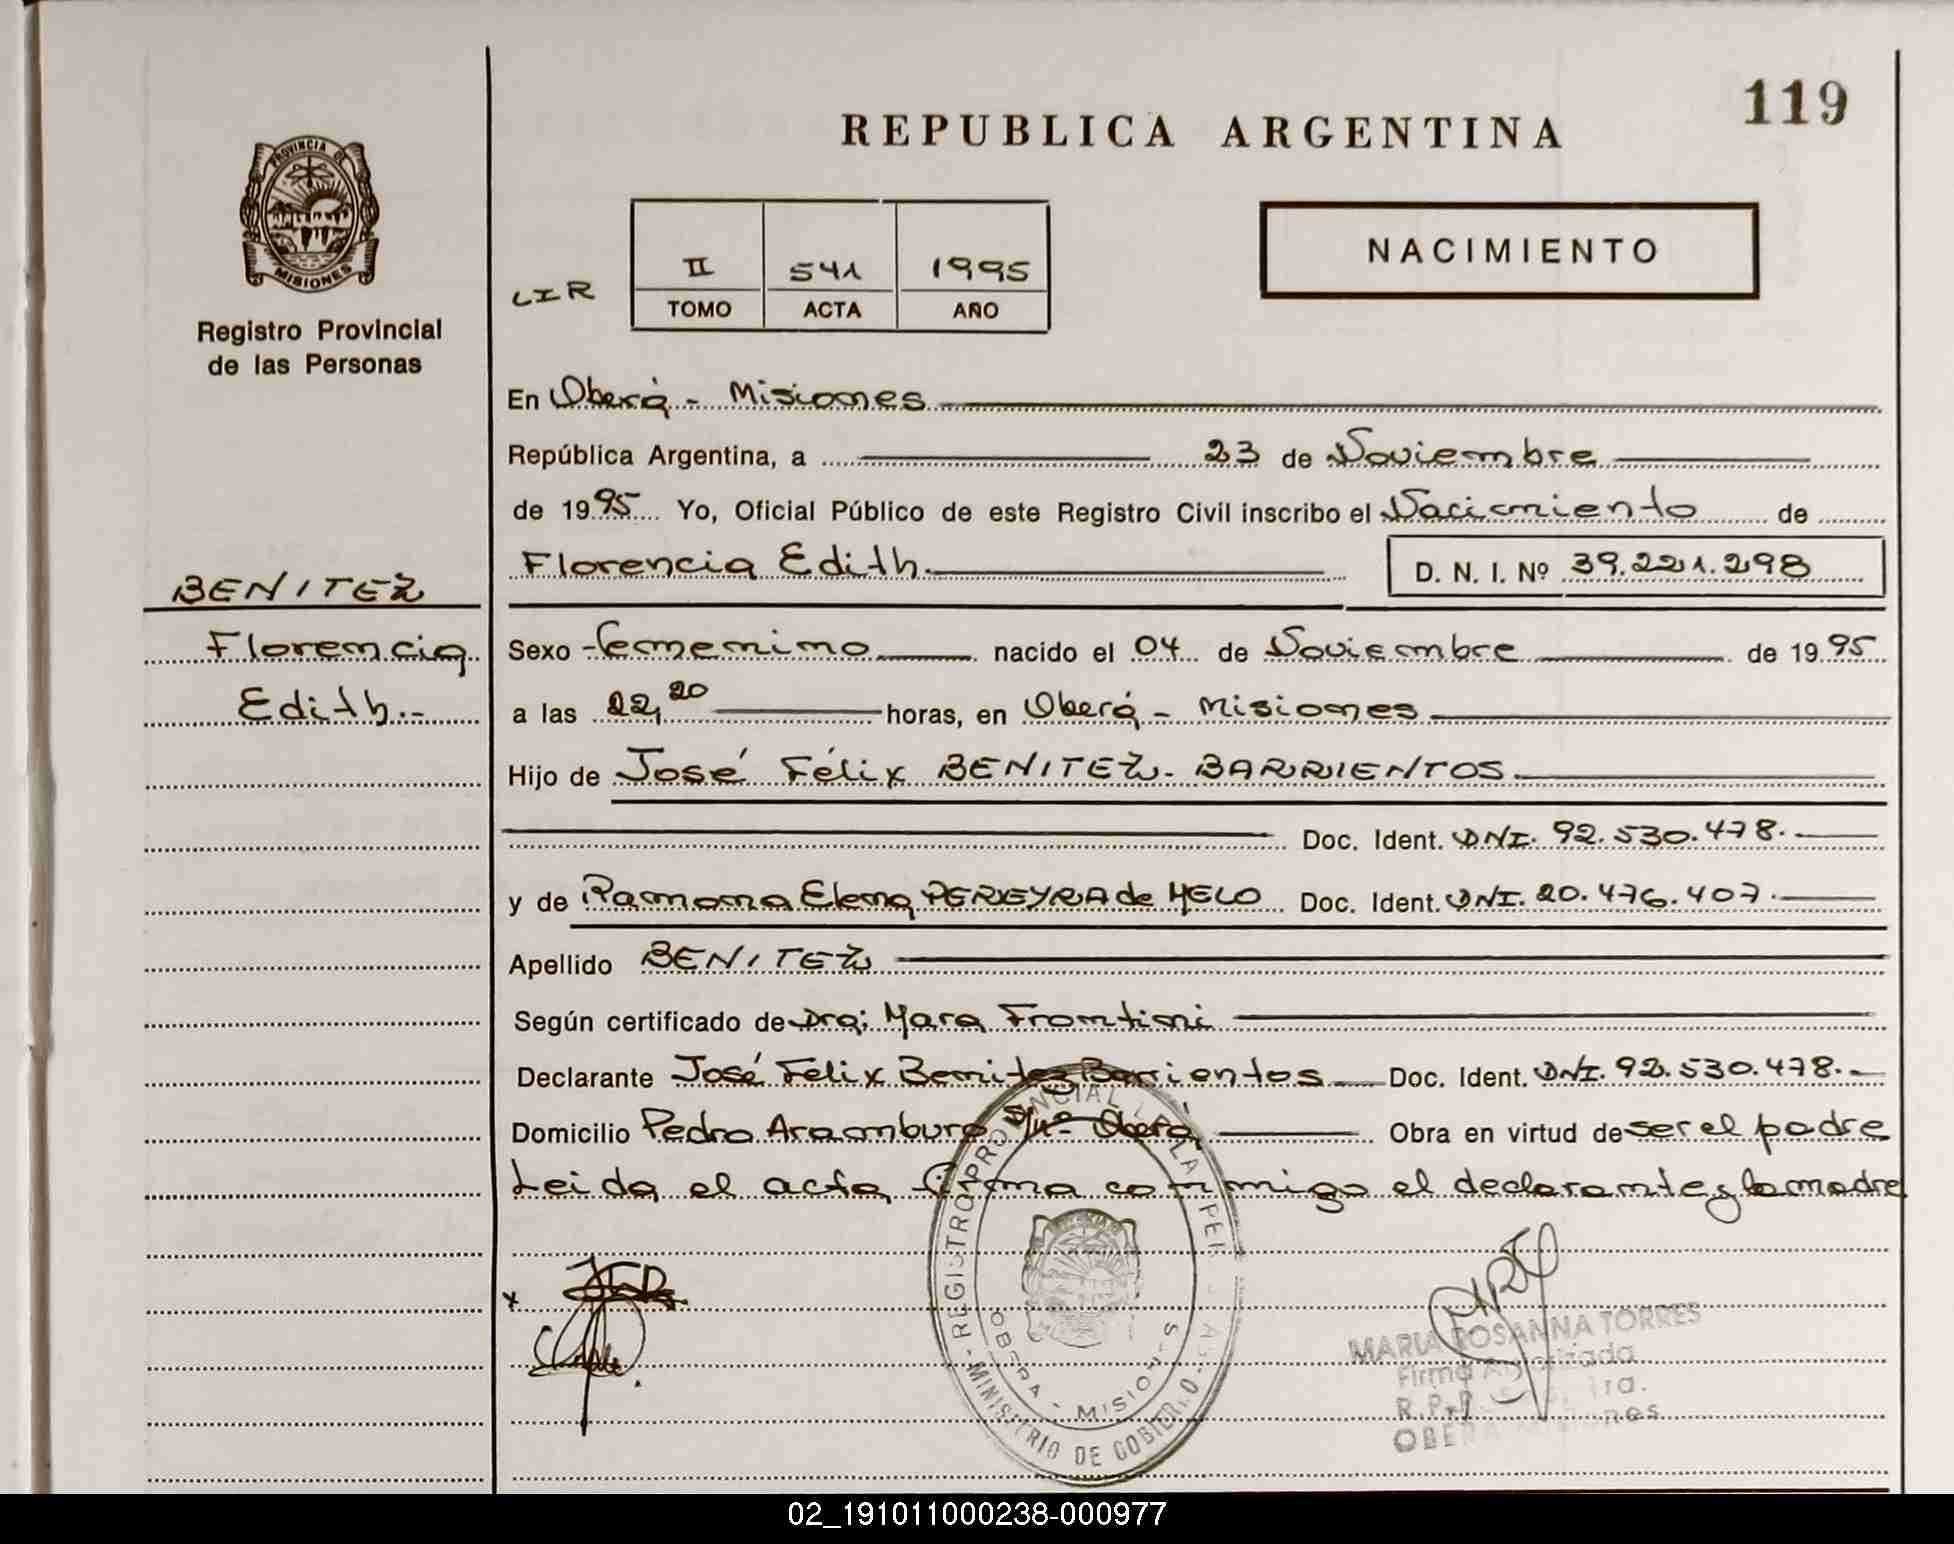 119
REPUBLICA ARGENTINA
PROVINCIA DE
MISIONES
Registro Provincial
de las Personas
LIR
II 541 1995
TOMO ACTA AÑO
NACIMIENTO
En Oberá - Misiones
República Argentina, a 23 de Noviembre
de 1995 Yo, Oficial Público de este Registro Civil inscribo el Nacimiento de
Florencia Edith. D. N. I. Nº 39.221.298
BENITEZ
Florencia
Edith.-
Sexo femenino nacido el 04 de Noviembre de 1995
a las 22,20 horas, en Oberá - Misiones
Hijo de José Félix BENITEZ- BARRIENTOS
Doc. Ident. DNI. 92.530.478.
y de Ramona Elena PEREYRA de MELO Doc. Ident. DNI. 20.476.407.
Apellido BENITEZ
Según certificado de Dra; Mara Frontini
Declarante José Felix Benitez Barrientos Doc. Ident. DNI. 92.530.478.-
Domicilio Pedro Aramburo S/nº- Oberá, Obra en virtud de ser el padre
Leida el acta firma conmigo el declarante y la madre
REGISTRO PROVINCIAL DE LAS PER
OBERA - MISIONES
MINISTRIO DE GOBIERNO
MARIA ROSANNA TORRES
Firma Autorizada
R.P.P.
OBERA
02_191011000238-000977